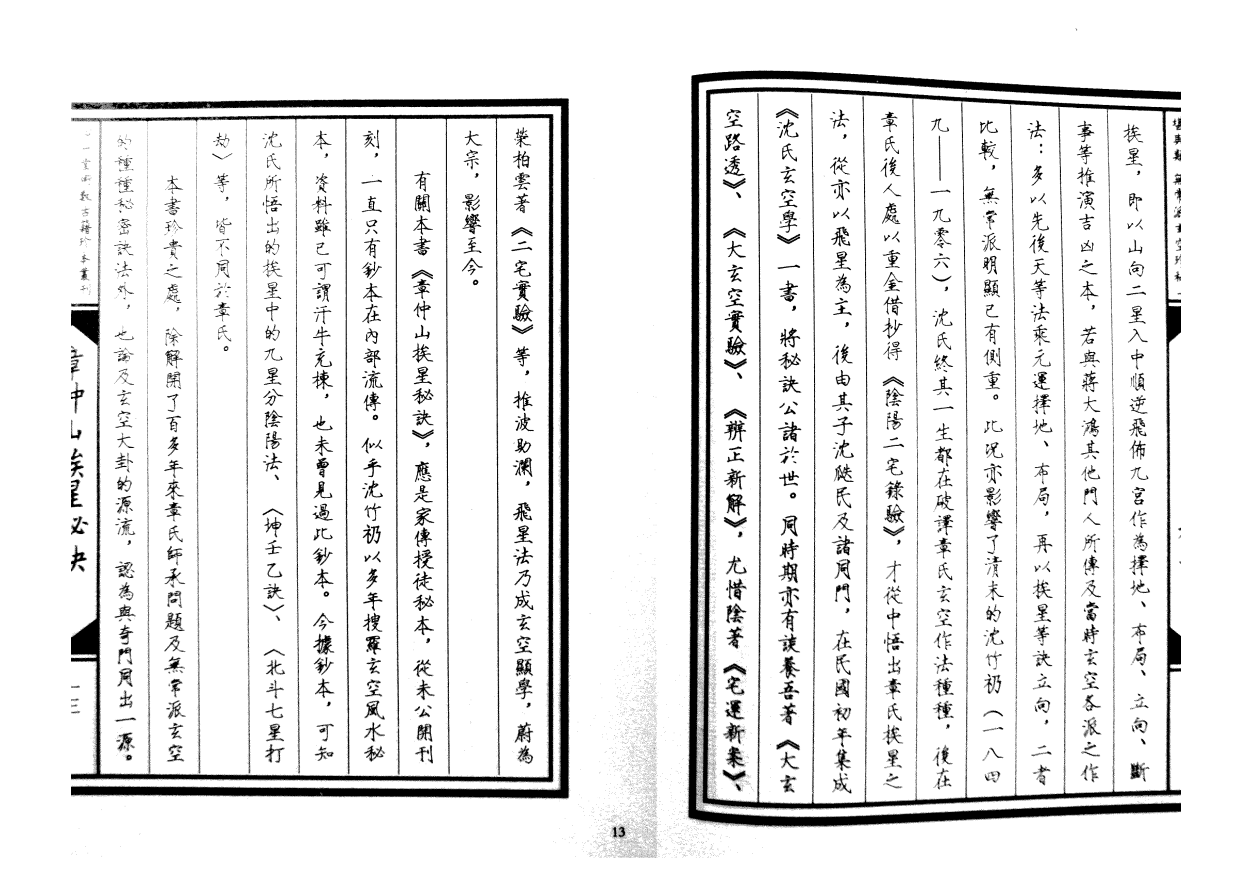 堪輿類 無常派玄空珍秘
挨星，即以山向二星入中順逆飛佈九宮作為擇地、布局、立向、斷
事等推演吉凶之本，若與蔣大鴻其他門人所傳及當時玄空各派之作
法：多以先後天等法乘元運擇地、布局，再以挨星等訣立向，二者
比較，無常派明顯已有側重。此況亦影響了清末的沈竹礽（一八四
九——一九零六），沈氏終其一生都在破譯章氏玄空作法種種，後在
章氏後人處以重金借抄得《陰陽二宅錄驗》，才從中悟出章氏挨星之
法，從亦以飛星為主，後由其子沈瓞民及諸同門，在民國初年集成
《沈氏玄空學》一書，將秘訣公諸於世。同時期亦有談養吾著《大玄
空路透》、《大玄空實驗》、《辨正新解》，尤惜陰著《宅運新案》、
榮柏雲著《二宅實驗》等，推波助瀾，飛星法乃成玄空顯學，蔚為
大宗，影響至今。
有關本書《章仲山挨星秘訣》，應是家傳授徒秘本，從未公開刊
刻，一直只有鈔本在內部流傳。似乎沈竹礽以多年搜羅玄空風水秘
本，資料雖已可謂汗牛充棟，也未曾見過此鈔本。今據鈔本，可知
沈氏所悟出的挨星中的九星分陰陽法、〈坤壬乙訣〉、〈北斗七星打
劫〉等，皆不同於章氏。
本書珍貴之處，除解開了百多年來章氏師承問題及無常派玄空
的種種秘密訣法外，也論及玄空大卦的源流，認為與奇門同出一源。
心一堂術數古籍珍本叢刊
章仲山挨星秘訣
一三
13